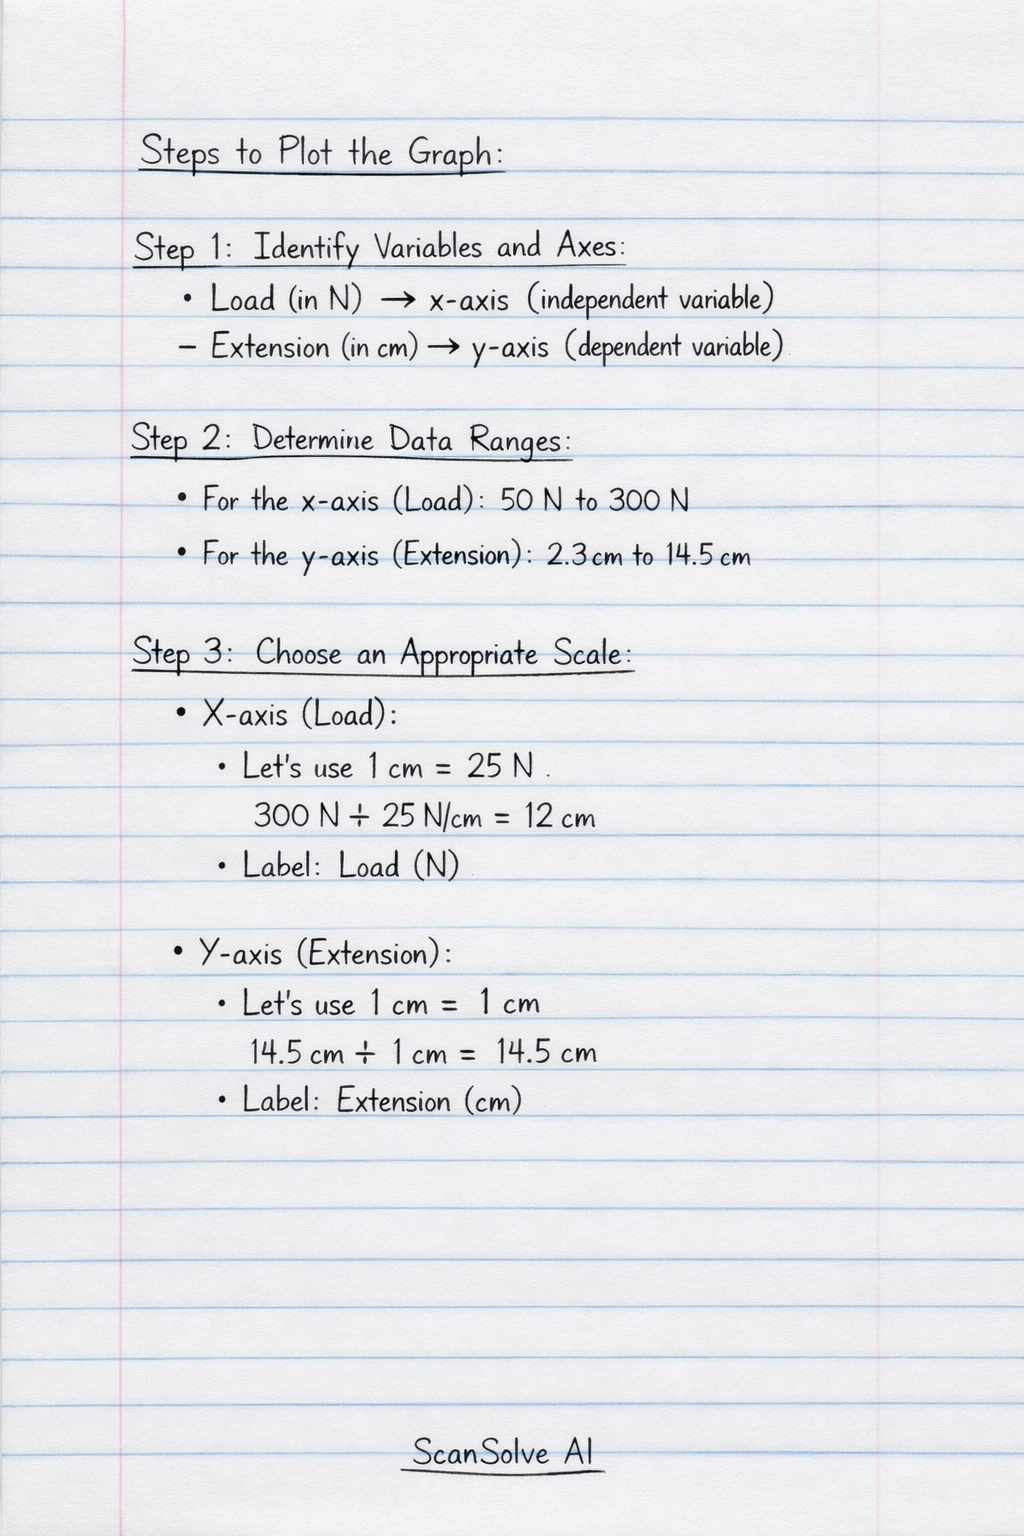 Steps to Plot the Graph:
Step 1: Identify Variables and Axes:
• Load (in N) → x-axis (independent variable)
– Extension (in cm) → y-axis (dependent variable)
Step 2: Determine Data Ranges:
• For the x-axis (Load): 50 N to 300 N
• For the y-axis (Extension): 2.3 cm to 14.5 cm
Step 3: Choose an Appropriate Scale:
• X-axis (Load):
• Let's use 1 cm = 25 N .
300 N ÷ 25 N/cm = 12 cm
• Label: Load (N)
• Y-axis (Extension):
• Let's use 1 cm = 1 cm
14.5 cm ÷ 1 cm = 14.5 cm
• Label: Extension (cm)
ScanSolve AI